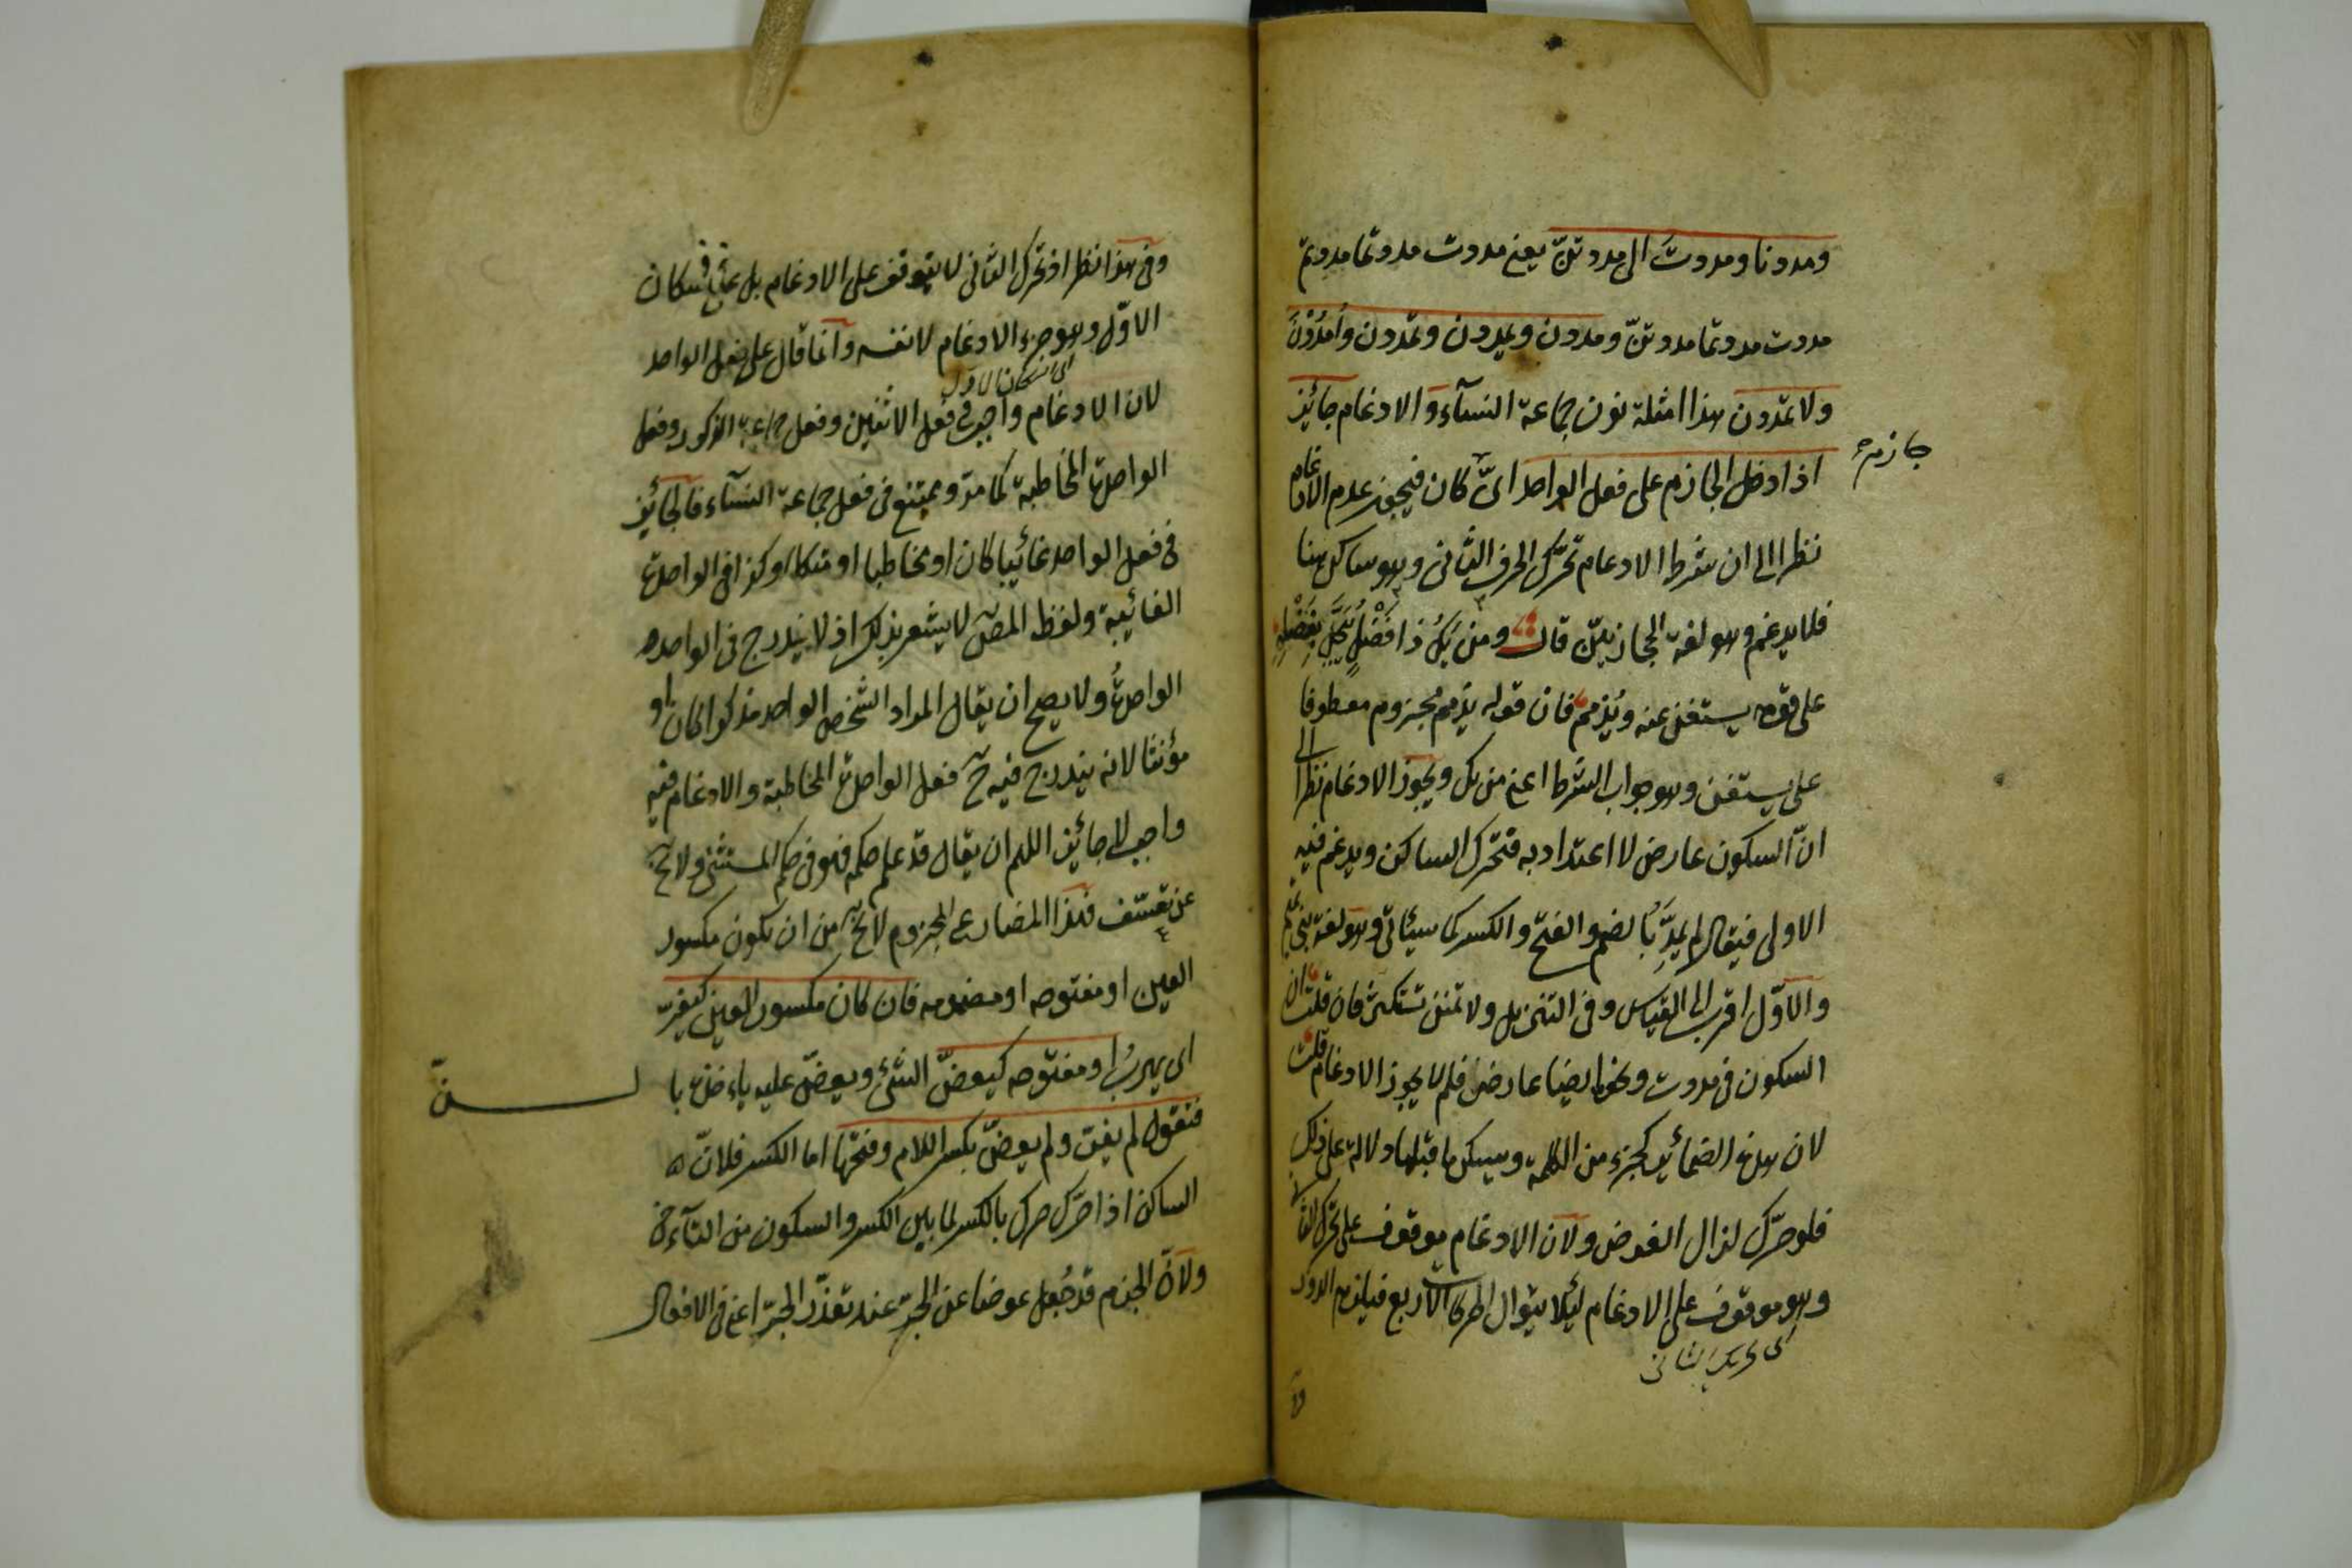 ومددنا ومددت الى مددتنّ يعنى مددت مددتما مددتم
مددت مددتما مددتنّ ومددن ويمددن وتمددن وامْدُدْنَ
ولا تمددن هذا امثلة نون جماعة النسآء والادغام جائز
اذا دخل الجازم على فعل الواحد اىّ كان فيجوز عدم الادغام
جازم
نظرا الى ان شرط الادغام تحرّك الحرف الثانى وهو ساكن هنا
فلا يدغم وهو لغة الحجازيين قال ومن يَكُ ذا فَضْلٍ فَيَبْخَلْ بِفَضْلِهِ
على قومه يستغن عنه ويُذمم فان قوله يذمم مجزوم معطوفا
على يستغن وهو جواب الشرط اعنى من يك ويجوز الادغام نظرا الى
انّ السكون عارض لا اعتداد به فتحرك الساكن ويدغم فيه
الاولى فيقال لم يمدّ بالضم والفتح والكسر كما سيئاتى وهو لغة بنى تميم
والاوّل اقرب الى القياس وفى التنزيل ولا تمنن تستكثر فان قلت ان
السكون فى مددت ونحوه ايضا عارض فلم لا يجوز الادغام قلت
لان هذه الضمائر كجزء من الكلمة وسكن ما قبلها دلالة على ذلك
فلو حرّك لزال الغرض ولان الادغام موقوف على تحرك الثا
وهو موقوف على الادغام ليئلا يتوال الحركات الاربع فيلزم الدور
اى تحريك الثانى
وفى هذا نظر اذ تحرك الثانى لا يتوقف على الادغام بل على اسكان
الاوّل وهو جزء الادغام لا نفسه وانما قال على فعل الواحد
اى اسكان الاول
لان الادغام واجب فى فعل الاثنين وفعل جماعة الذكور وفعل
الواحدة المخاطبة كما مرّ ويمتنع فى فعل جماعة النسآء فالجائز
فى فعل الواحد غائبا كان او مخاطبا او متكلما وكذا فى الواحدة
الغائبة ولفظ المصنف لا يشعر بذلك اذ لا يندرج فى الواحد
الواحدة ولا يصح ان يقال المراد الشخص الواحد مذكرا كان او
مؤنثا لانه يندرج فيه ح فعل الواحدة المخاطبة والادغام فيه
واجب لا جائز اللهم ان يقال قد علم حكمه فهو فى حكم المستثنى ولا يخ
عن تعسّف فهذا المضارع المجزوم لا يخ من ان يكون مكسور
العين او مفتوحه او مضمومه فان كان مكسور العين كيفرّ
اى يهرب او مفتوحه كيعضّ الشئ ويعضّ عليه ياءخذه با
لسنّ
فتقول لم يفرّ ولم يعضّ بكسر اللام وفتحها اما الكسر فلانّ
الساكن اذا حرّك حرك بالكسر لما بين الكسر والسكون من التآءخى
ولانّ الجزم قد جُعل عوضا عن الجرّ عند تعذّر الجرّ اعنى فى الافعال